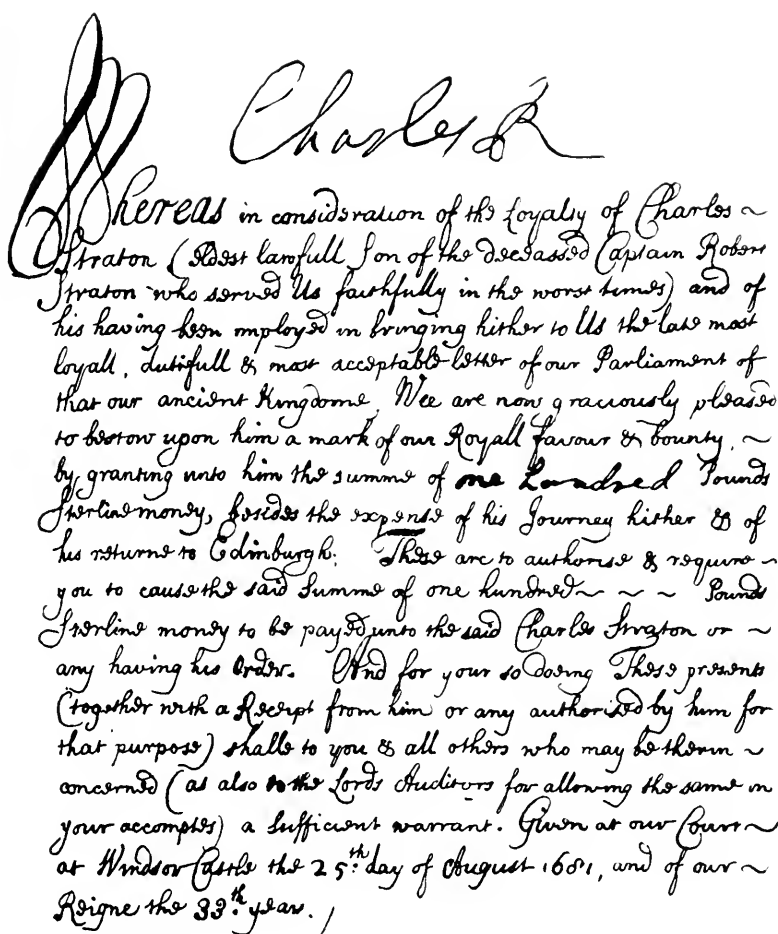 Charles R
Whereas in consideration of the Loyalty of Charles ~
Straton (Eldest lawfull Son of the deceassed Captain Robert
Straton who served Us faithfully in the worst times) and of
his having been imployed in bringing hither to Us the late most
loyall, dutifull & most acceptable letter of our Parliament of
that our ancient Kingdome, Wee are now graciously pleased
to bestow upon him a mark of our Royall favour & bounty, ~
by granting unto him the summe of one hundred Pounds
Sterline money, besides the expense of his Journey hither & of
his returne to Edinburgh. These are to authorise & require ~
you to cause the said Summe of one hundred ~ ~ ~ Pounds
Sterline money to be payed unto the said Charles Straton or ~
any having his Order. And for your so doeing These presents
(together with a Receipt from him or any authorised by him for
that purpose) shalle to you & all others who may be therin ~
concerned (as also to the Lords Auditors for allowing the same in
your accomptes) a Sufficient warrant. Given at our Court ~
at Windsor Castle the 25th day of August 1681, and of our ~
Reigne the 33th year. /